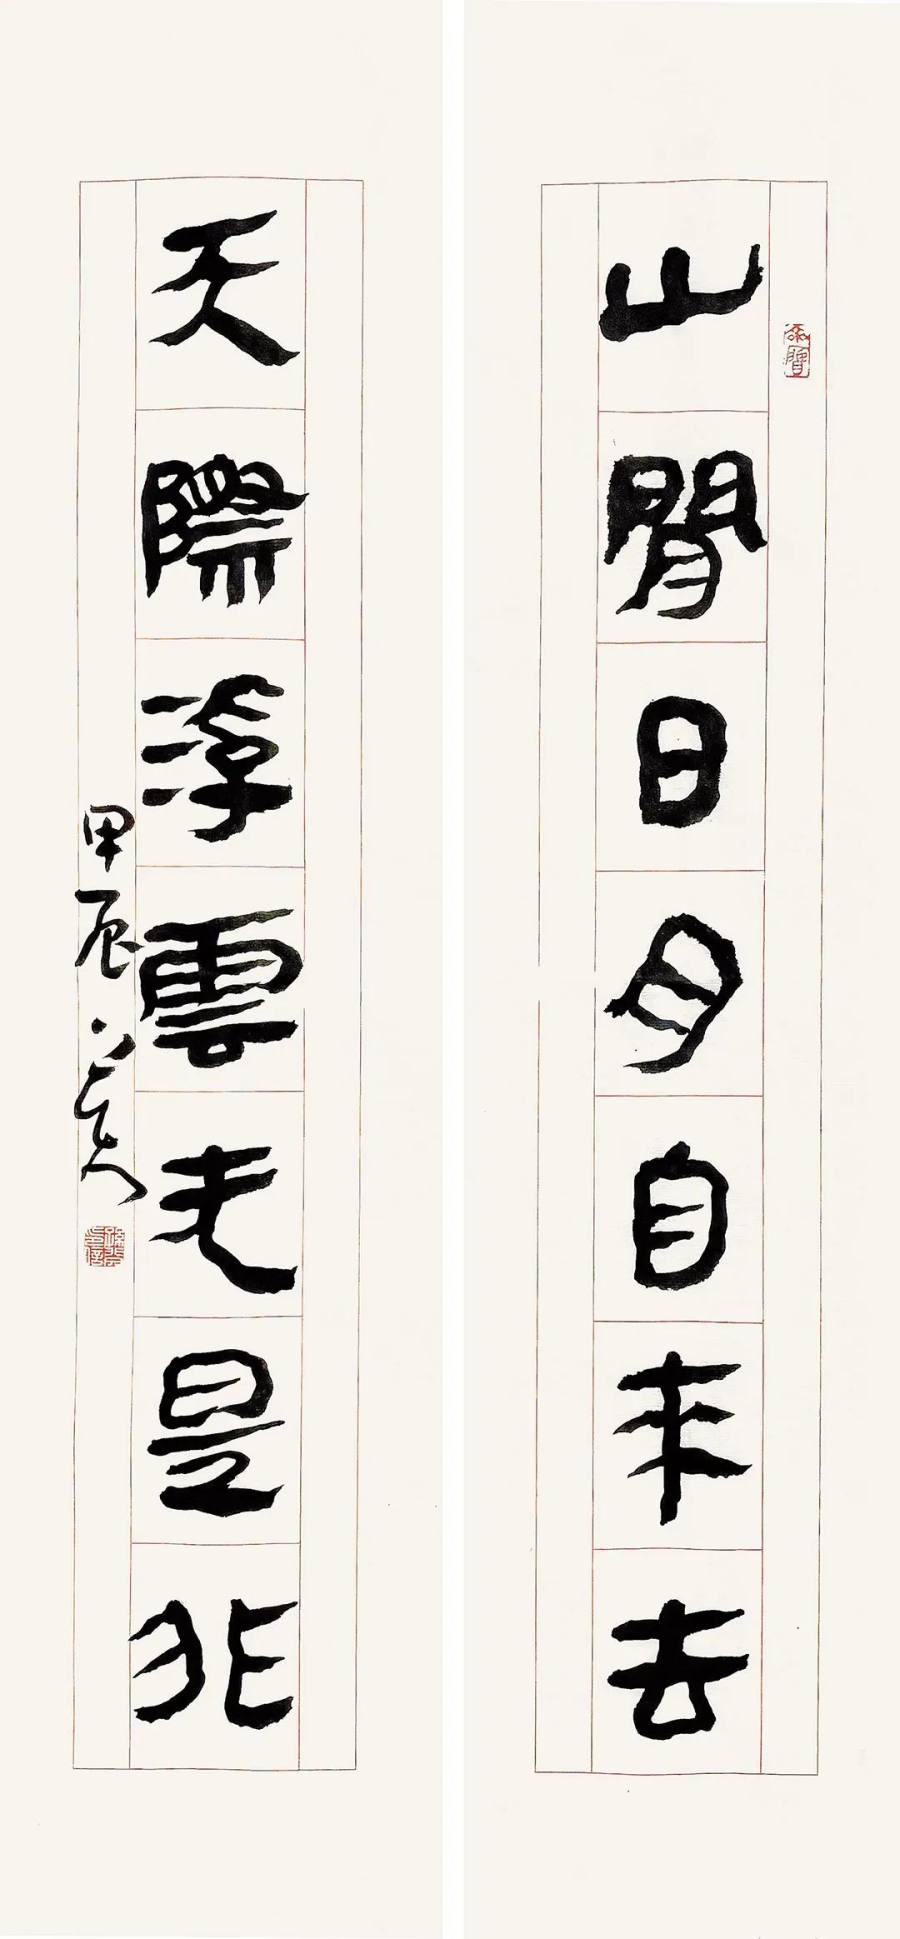 山間日月自来去
天際浮雲无是非
甲辰